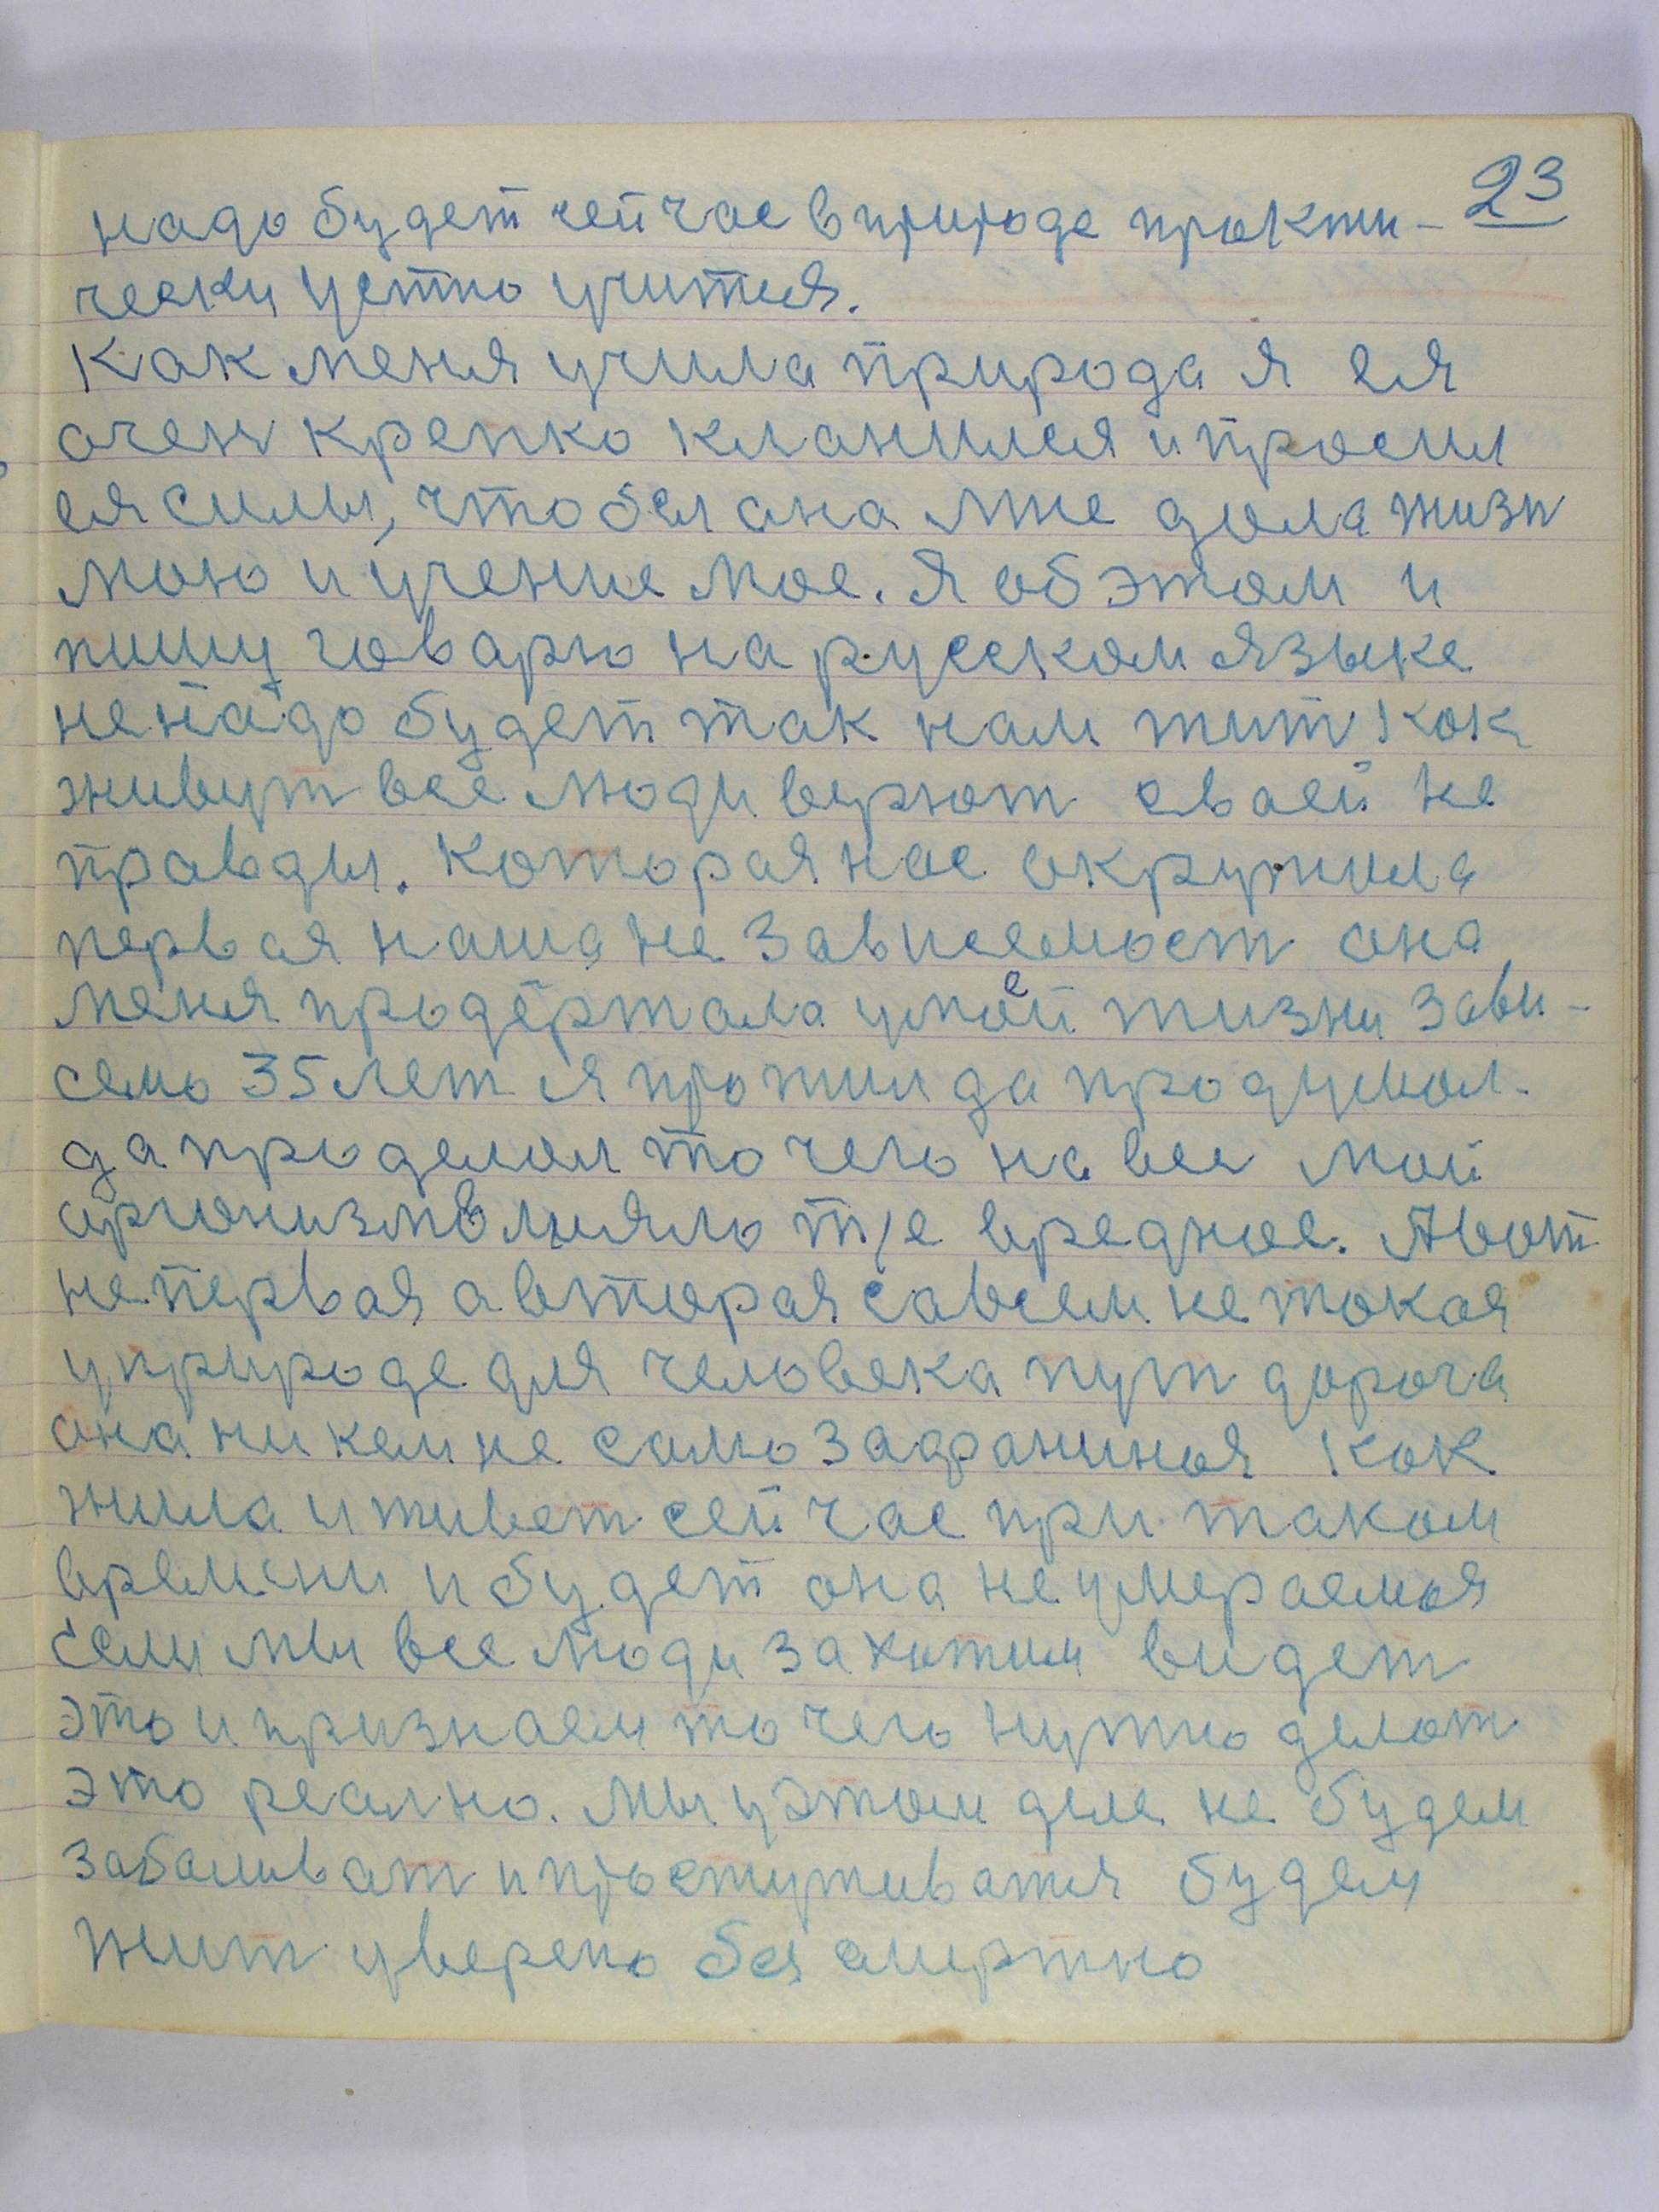 23
надо будет сейчас в природе практи-
чески устно учится.
Как меня учила природа я ея
очен крепко кланился и просил
ея силы, чтобы она мне дала жизн
мою и учение мое. Я об этом и
пишу говарю на русском языке
не надо будет так нам жит как
живут все люди верют сваей не
правды. Которая нас окружила
первая наша не зависемост она
меня продержала у моей жизни зави-
семо 35 лет я прожил да продумал
да проделал то чего на все мой
организм влияло т/е вредное. А вот
не первая а вторая савсем не токая
у природе для человека пут дорога
она ни кем не само задраниная как
жила и живет сейчас при таком
времени и будет она не умераемая
если мы все люди захотим видет
это и признаем то чего нужно делат
это реално. Мы у этом деле не будем
заболиват и простуживатся будем
жит уверено без смертно